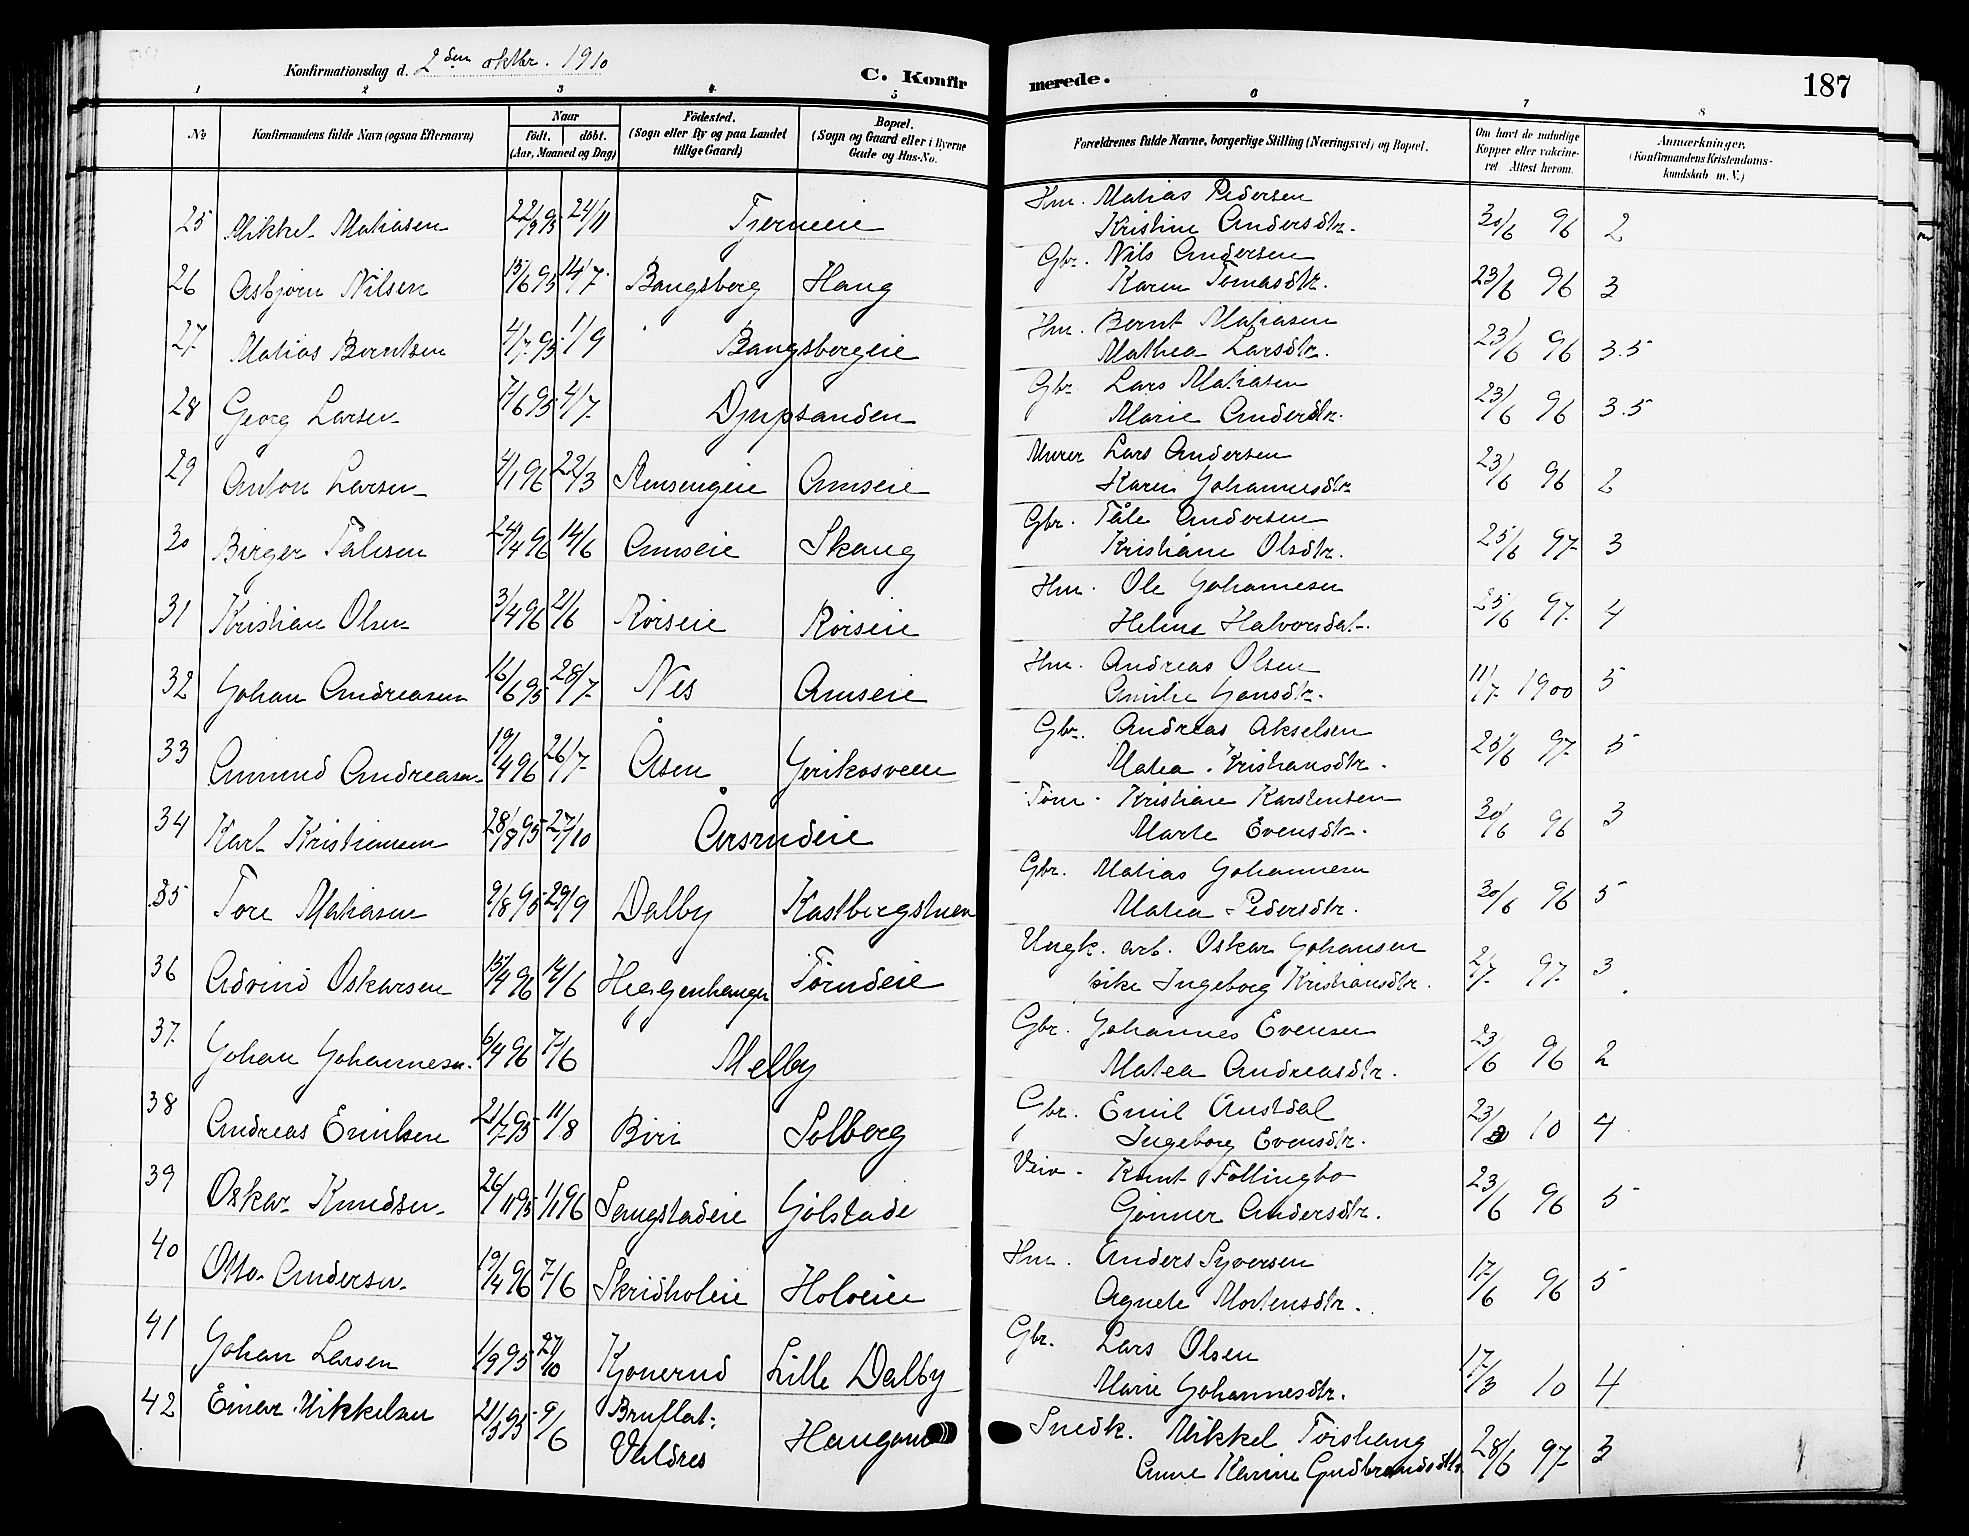 Konfirmationsdag d. 2den oktbr. 1910
C. Konfirmerede.
187
1 2 3 4 5 6 7 8
No
Konfirmandens fulde Navn (ogsaa Efternavn)
Naar
födt. döbt.
(Aar, Maaned og Dag)
Födested.
(Sogn eller By og paa Landet
tillige Gaard)
Bopæl.
(Sogn og Gaard eller i Byerne
Gade og Hus-No.
Forældrenes fulde Navne, borgerlige Stilling (Næringsvei) og Bopæl.
Om havt de naturlige
Kopper eller vakcine-
ret. Attest herom.
Anmærkninger.
(Konfirmandens Kristendoms-
kundskab m. V.)
25 Mikkel Matiasen 22/9 95 24/11 Tjerneie Hm. Matias Pedersen
Kristine Andersdtr. 30/6 96 2
26 Asbjørn Nilsen 15/6 95 14/7 Bangsberg Haug Gbr. Nils Andersen
Karen Tomasdtr. 23/6 96 3
27 Matias Berntsen 4/7 95 1/9 Bangsbergeie Hm. Bernt Matiasen
Mathea Larsdtr. 23/6 96 3.5
28 Georg Larsen 7/6 95 4/7 Djupsanden Gbr. Lars Matiasen
Marie Anderdtr. 23/6 96 3.5
29 Anton Larsen 4/1 96 22/3 Stensengeie Amseie Murer Lars Andersen
Karen Johannesdtr 23/6 96 2
30 Birger Pålsen 24/4 96 14/6 Amseie Skaug Gbr. Påle Andersen
Kristiane Olsdtr. 25/6 97 3
31 Kristian Olsen 3/4 96 21/6 Rörseie Rörseie Hm. Ole Johannesen
Helene Halvorsdat. 25/6 97 4
32 Johan Andreasen 16/6 95 28/7 Nes Amseie Hm. Andreas Olsen
Amilie Hansdtr. 11/7 1900 5
33 Amund Andreasen 19/4 96 26/7 Åsen Jerikosveen Gbr. Andreas Akselsen
Matea Kristiansdtr. 25/6 97 5
34 Karl Kristiansen 28/8 95 27/10 Årsrudeie Töm. Kristian Karstensen
Marte Evensdtr. 30/6 96 3
35 Tore Matiasen 9/8 95 29/9 Dalby Kastbergstuen Gbr. Matias Johannesen
Matea Pedersdtr. 30/6 96 5
36 Edvind Oskarsen 15/4 96 14/6 Heggenhaugen Törudeie Ungk. arb. Oskar Johansen
pike Ingeborg Kristiansdtr. 2/7 97 3
37 Johan Johannesen. 6/4 96 7/6 Melby Gbr. Johannes Evensen
Matea Andreasdtr. 23/6 96 2
38 Andreas Emilsen 21/7 95 11/8 Biri Solberg Gbr. Emil Austdal
Ingeborg Evensdtr. 23/ 10 4
39 Oskar Knudsen 26/11 95 1/1 96 Saugstadeie Gjölstade Veiv. Knut Follingbo
Gönner Andersdtr. 23/6 96 5
40 Otto Andersen 19/4 96 7/6 Skridholeie Holveie Hm. Anders Syversen
Agnete Mortensdtr. 17/6 96 5
41 Johan Larsen 1/9 95 27/10 Kjonerud Lille Dalby Gbr. Lars Olsen
Marie Johannesdtr. 17/3 10 4
42 Einar Mikkelsen 21/3 95 9/6 Bruflat: Haugom Snedk. Mikkel Törshaug
Valdres Anne Karine Gudbrandsdtr 28/6 97 3